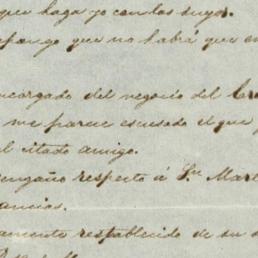 que haga yo con los suyos.
pongo que no habrá que en
ncargado del negocio del Cre
me parece escusado el que
l citado amigo.
engaño respecto á Sn. Mart
ancias.
amente restablecido de su